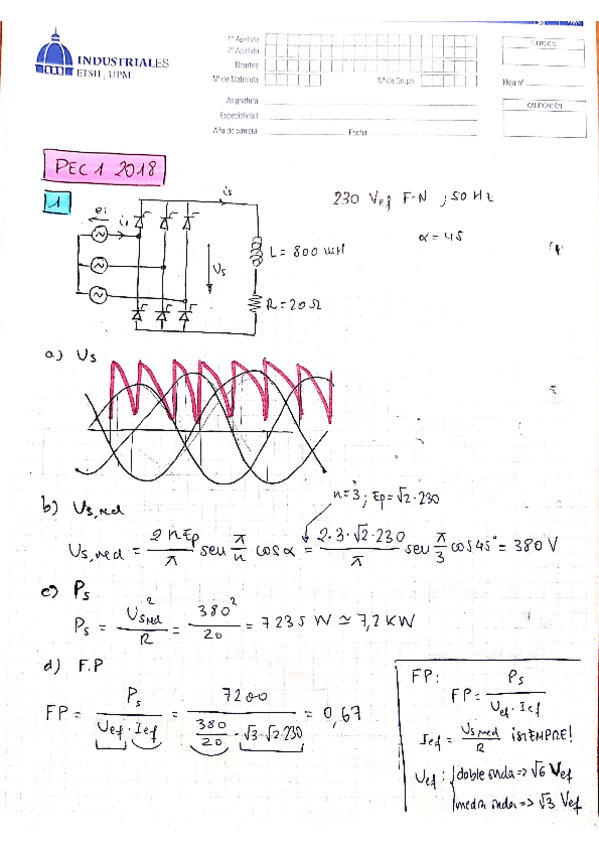 INDUSTRIALES
ETSII, UPM
1º Apellido
2º Apellido
Nombre
Nº de Matrícula
Nº de Grupo
Asignatura
Especialidad
Año de carrera
Fecha
Hoja nº
CALIFICACIÓN
PEC 1 2018
1
230 Vef F-N ; 50 Hz
α = 45
is
ei
i1
L = 800 mH
Us
R = 20 Ω
a) Us
b) Us,med
n=3 ; Ep = √2·230
Us,med = 2 n Ep / π sen π/n cos α = 2·3·√2·230 / π sen π/3 cos 45° = 380 V
c) Ps
Ps = Usmed² / R = 380² / 20 = 7235 W ≃ 7,2 KW
d) F.P
FP = Ps / Uef · Ief = 7200 / 380/20 · √3·√2·230 = 0,67
FP:
FP = Ps / Uef · Ief
Ief = Us med / R ¡SIEMPRE!
Uef : doble onda => √6 Vef
media onda => √3 Vef